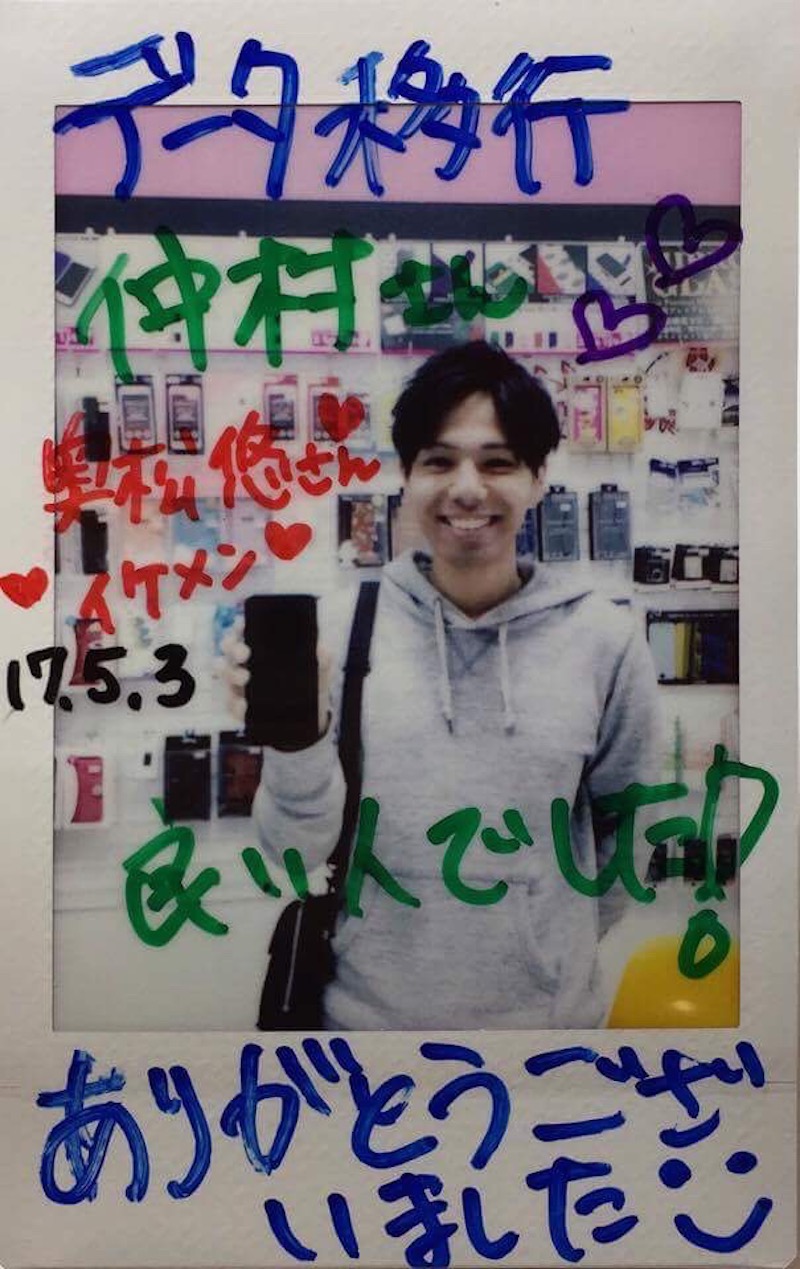 データ移行
仲村さん
奥松悠さん
イケメン
17.5.3
良い人でした!
ありがとうござ
いました